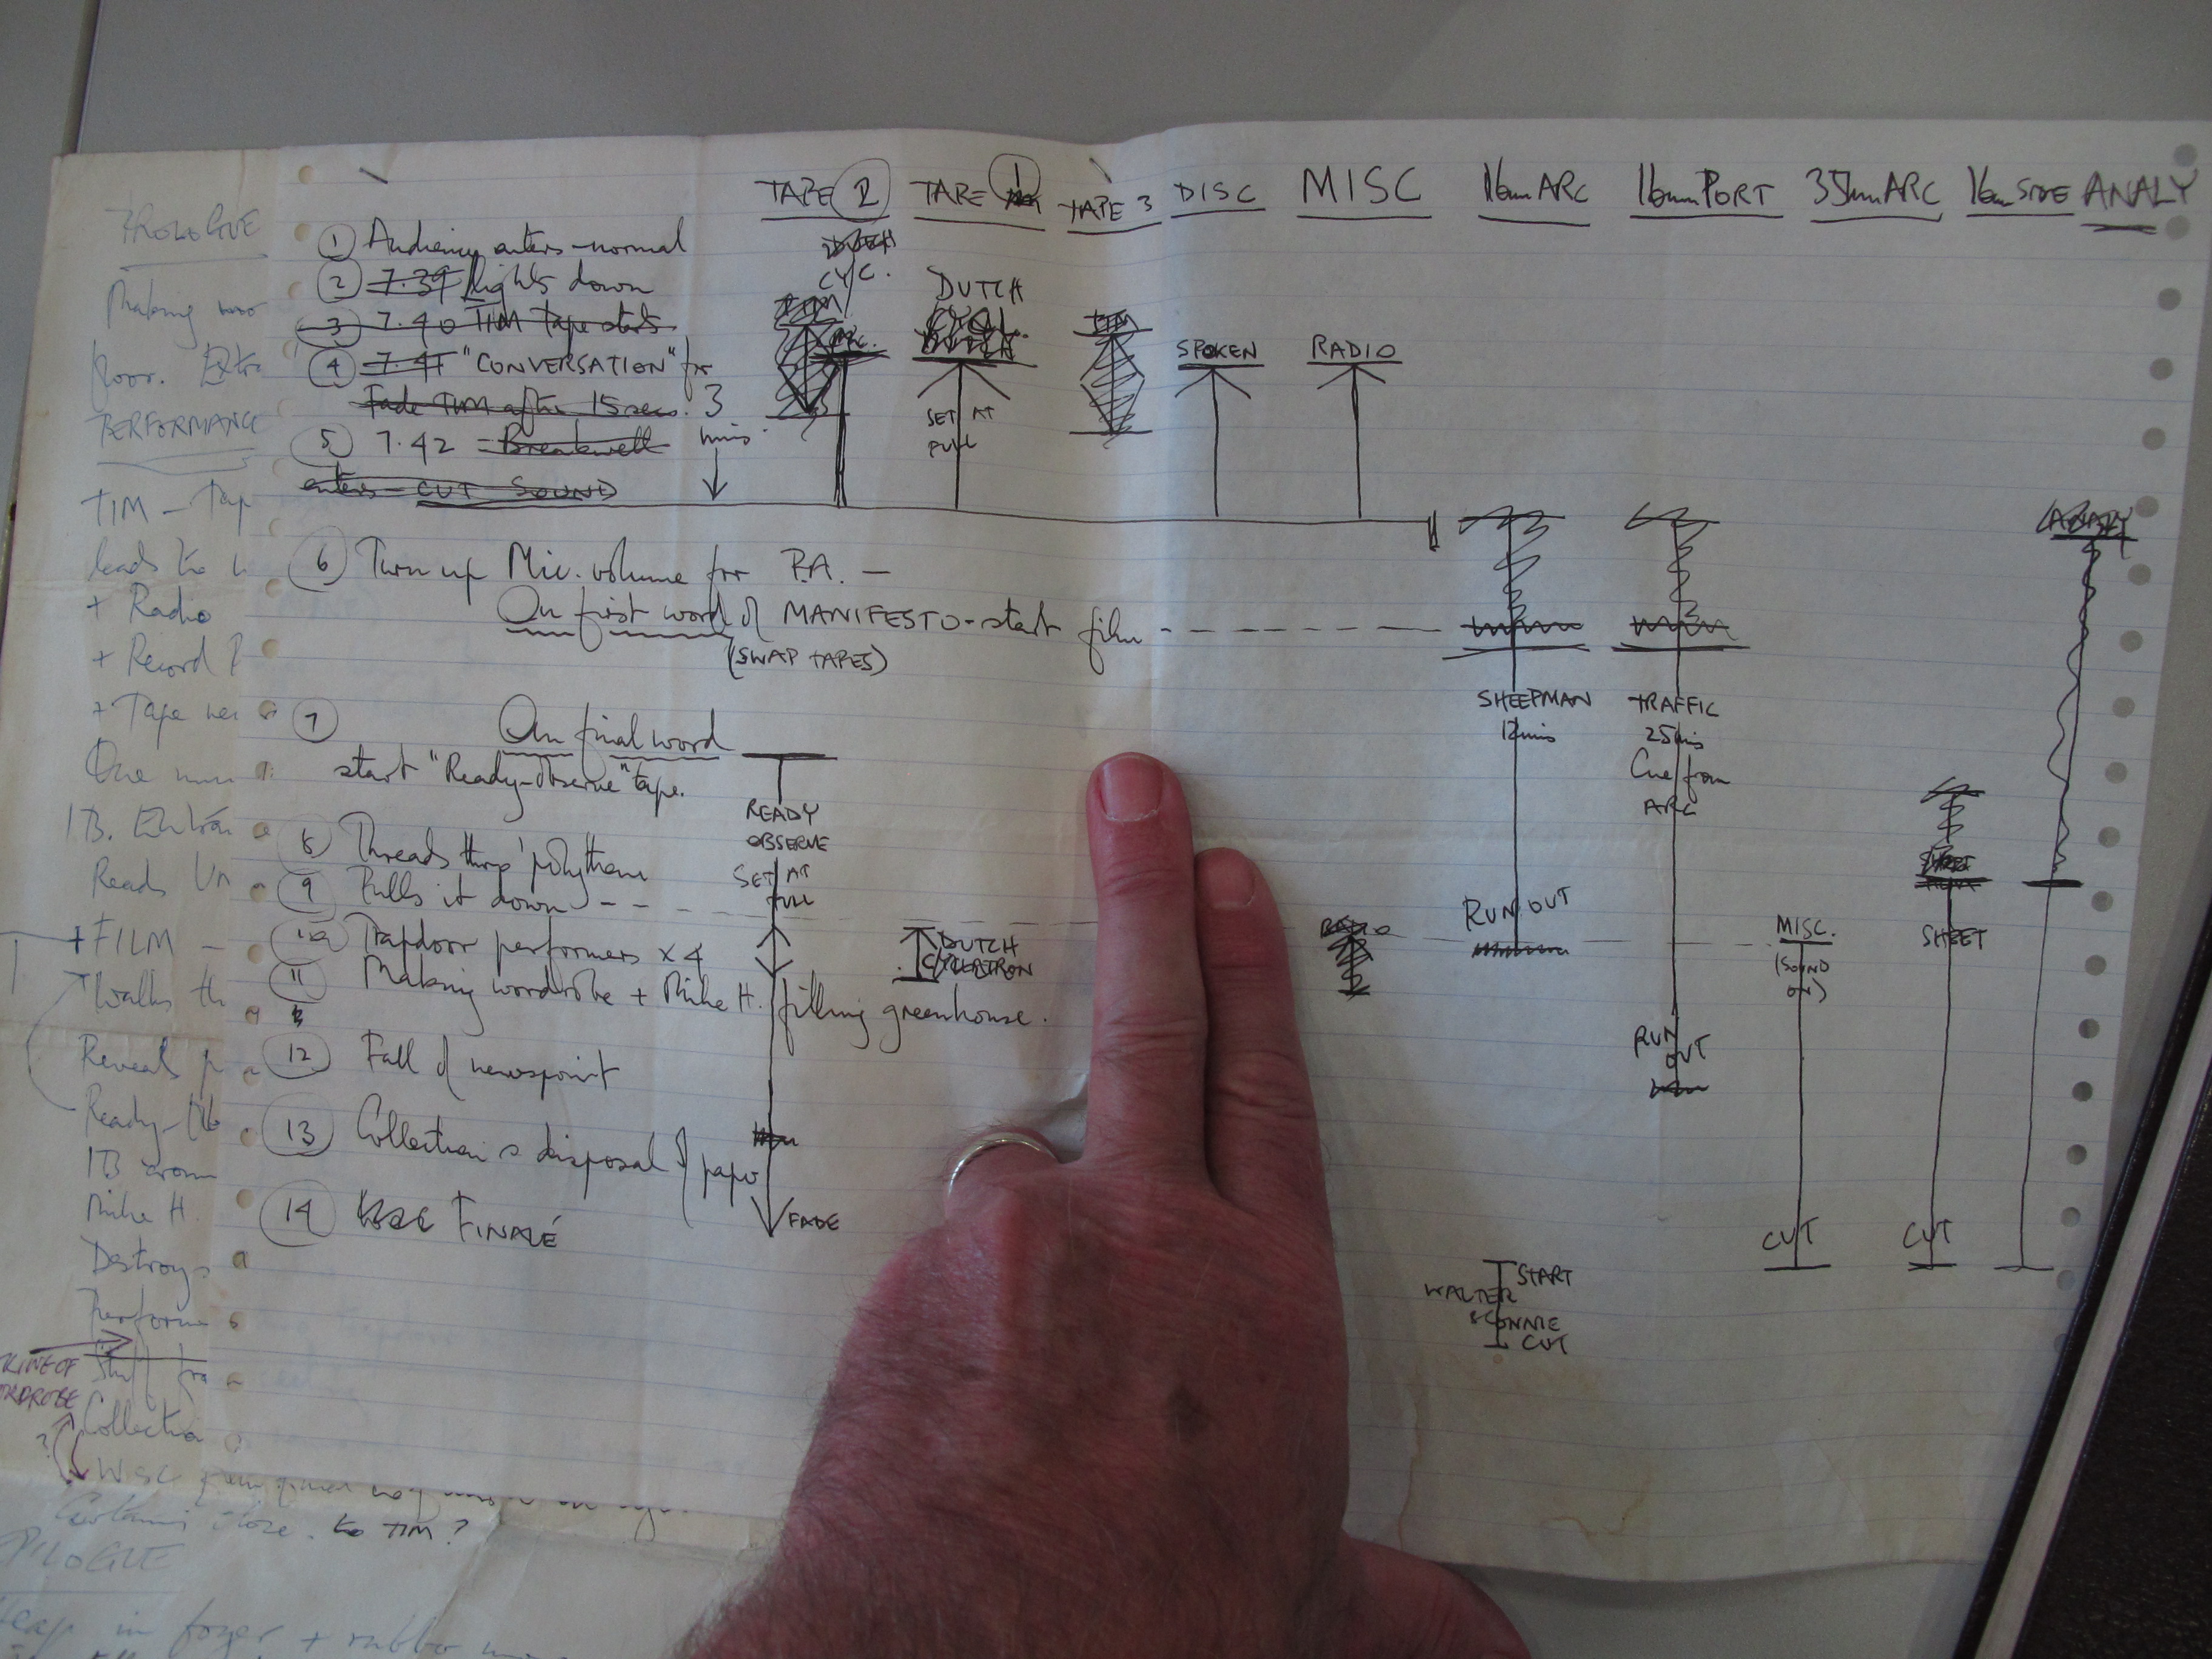 TAPE 2 TAPE 1 TAPE 3 DISC MISC 16mm ARC 16mm PORT 35mm ARC 16m SIDE ANALY
1 Audience enters - normal
2 7.39 lights down
3 7.40 TIM Tape starts
4 7.41 "CONVERSATION" for 3 mins.
Fade TIM after 15 secs.
5 7.42 - Breakwell
enters - CUT SOUND
DUTCH
CYC.
TIM
DUTCH
SET AT
FULL
TIM
SPOKEN
RADIO
ANALY
6 Turn up Mic. volume for P.A. -
On first word of MANIFESTO - start film
(SWAP TAPES)
SHEEPMAN
12mins
TRAFFIC
25mins
Cue from
ARC
7 On final word
start "Ready-Observe" tape.
READY
OBSERVE
SET AT
FULL
8 Threads thro' polythene
9 Pulls it down
10 Trapdoor performers x 4
11 Making wordrobe + Mike H. filling greenhouse.
12 Fall of newsprint
13 Collection & disposal of paper
14 FINALÉ
DUTCH
FADE
RADIO
RUN OUT
RUN
OUT
MISC.
(SOUND
ON)
SHEET
CUT
CUT
START
WALTER
& CONNIE
CUT
PROLOGUE
Making
floor. Extra
PERFORMANCE
TIM - Tap
leads to
+ Radio
+ Record
+ Tape
One
I.B.
Reads
+ FILM -
Walks th
Reveals
Ready-
IB
Mike H.
Destroys
Performe
Stuff
Collectio
WSC
to TIM?
in foyer + rubber